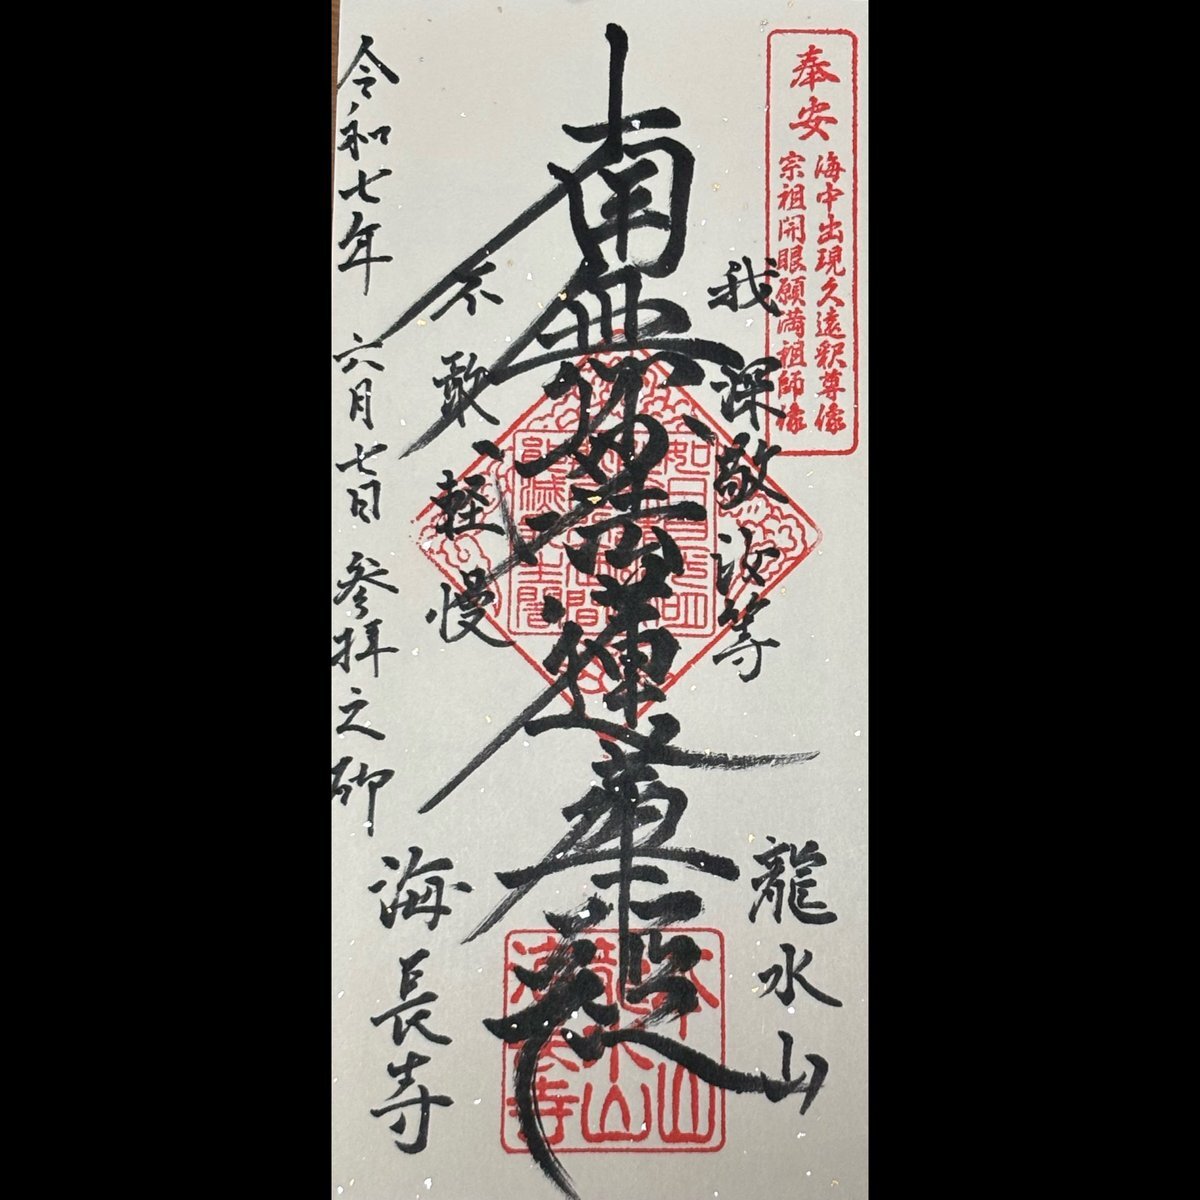 奉安
海中出現久遠釈尊像
宗祖開眼願満祖師像
我深敬汝等
龍水山
南無妙法蓮華経
不敢軽慢
海長寺
令和七年 六月七日 参拝之砌
本山
龍水山
海長寺